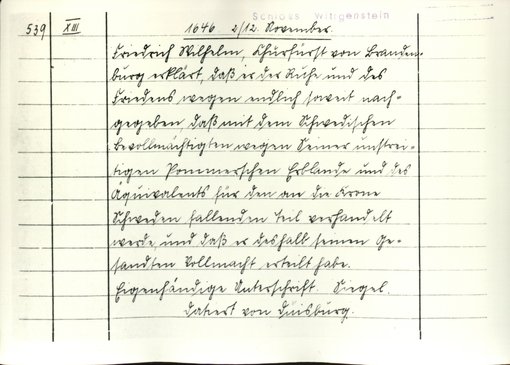 Schloss Wittgenstein
539 XIII 1646 2/12. November.
Friedrich Wilhelm, Churfürst von Branden-
burg erklärt, daß er der Ruhe und des
Friedens wegen endlich soweit nach-
gegeben, daß mit dem Schwedischen
Bevollmächtigten wegen Seiner unstrei-
tigen Pommerschen Erblande und des
Äquivalents für den an die Krone
Schweden fallenden Teil verhandelt
werde, und daß er deshalb seinen Ge-
sandten Vollmacht erteilt habe.
Eigenhändige Unterschrift. Siegel.
Datiert von Duisburg.